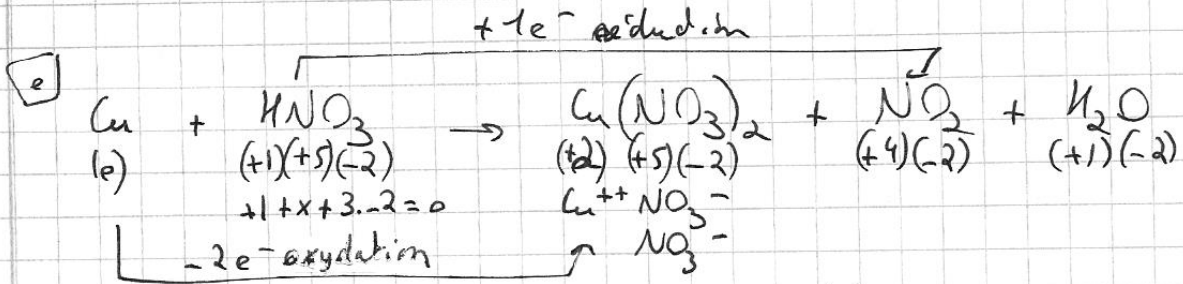 +1e⁻ réduction
e
Cu + HNO₃ → Cu(NO₃)₂ + NO₂ + H₂O
(0) (+1)(+5)(-2) (+2)(+5)(-2) (+4)(-2) (+1)(-2)
+1+x+3.-2=0 Cu⁺⁺ NO₃⁻
-2e⁻ oxydation NO₃⁻